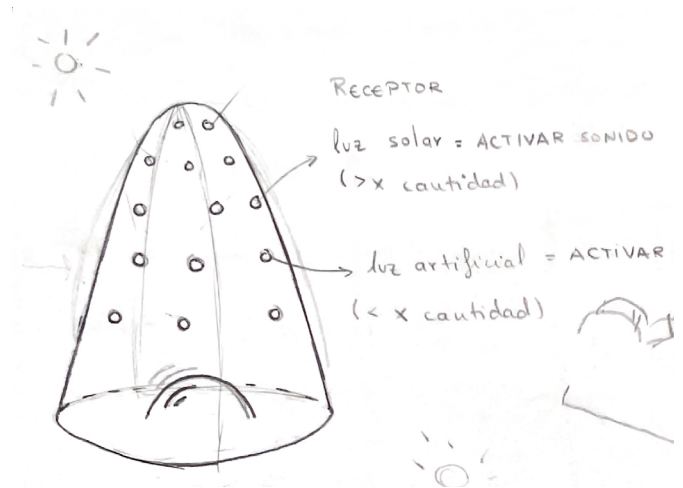 RECEPTOR
luz solar = ACTIVAR SONIDO
(>x cantidad)
luz artificial = ACTIVAR
(< x cantidad)